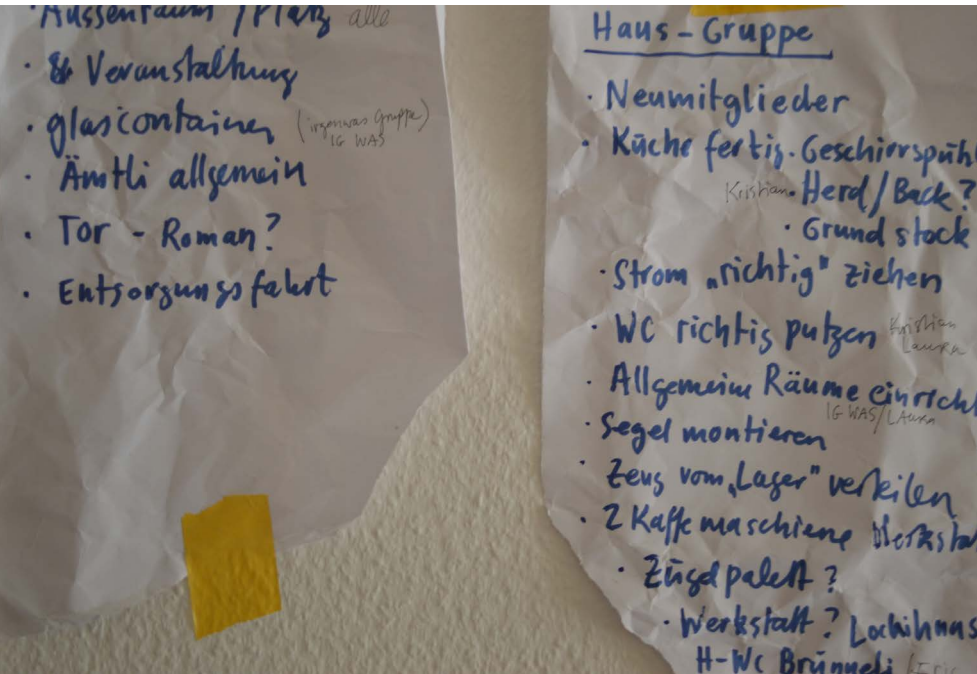 · Aussenraum / Platz alle
· Veranstaltung
· glascontainer (irgenwas Gruppe)
IG WAS
· Ämtli allgemein
· Tor - Roman?
· Entsorgungsfahrt
Haus-Gruppe
· Neumitglieder
· Küche fertig · Geschirrspühl
Kristian · Herd/Back?
· Grundstock
· Strom „richtig" ziehen
· WC richtig putzen Kristian
Laura
· Allgemeine Räume einricht
IG WAS/LAura
· Segel montieren
· Zeug vom „Lager" verteilen
· 2 Kaffemaschiene Werksta
· Zügelpalett?
· Werkstatt? Lochihaus
H-WC Brünneli